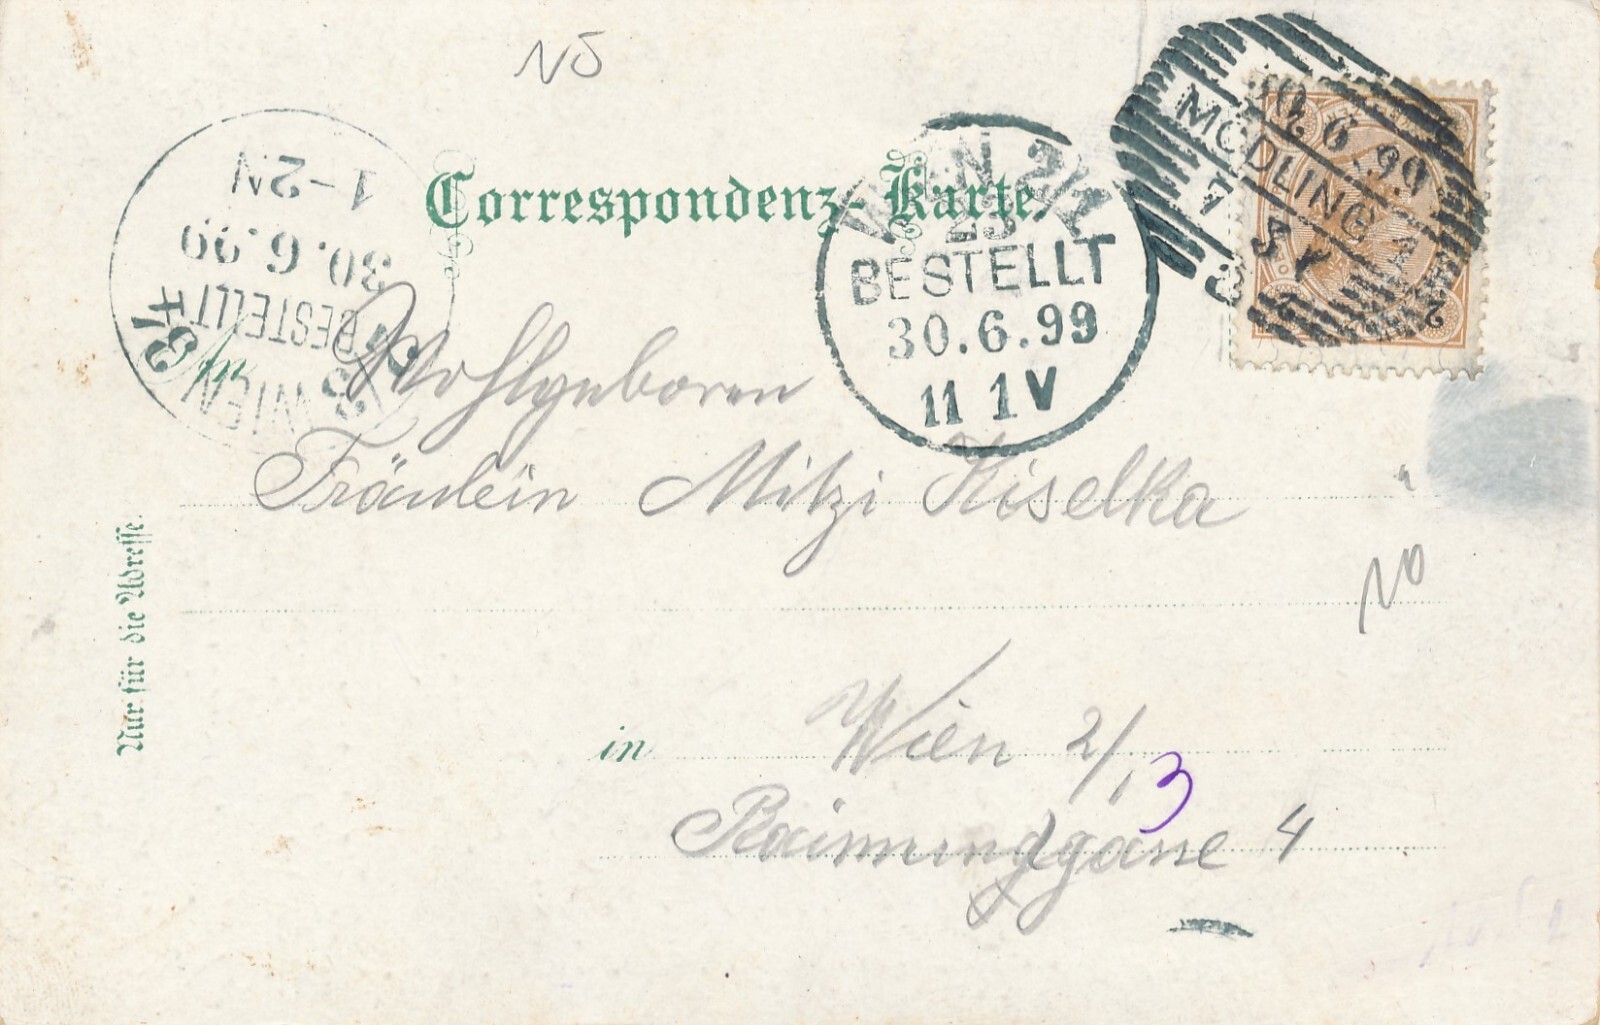 NÖ
Correspondenz-Karte.
MÖDLING
30.6.99
WIEN 2/1
BESTELLT
30.6.99
11 1V
WIEN
BESTELLT
30.6.99
1-2N
An Wohlgeboren
Fräulein Mitzi Kiselka
NÖ
in Wien 2/, 3
Raimundgasse 4
Nur für die Adresse.